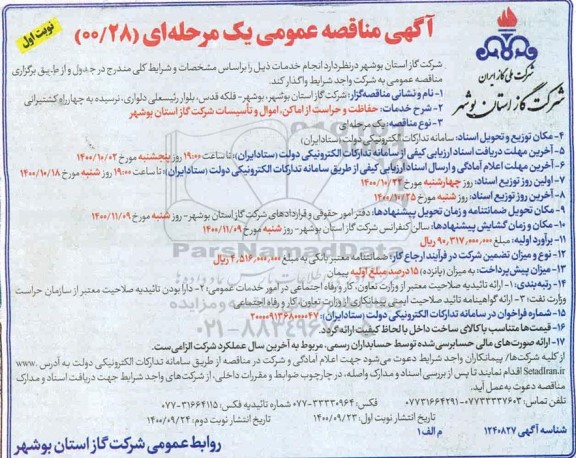 آگهی مناقصه عمومی یک مرحله‌ای (۰۰/۲۸)
نوبت اول
شرکت ملی گاز ایران
شرکت گاز استان بوشهر
شرکت گاز استان بوشهر درنظردارد انجام خدمات ذیل را براساس مشخصات و شرایط کلی مندرج در جدول و از طریق برگزاری
مناقصه عمومی به شرکت واجد شرایط واگذار کند.
۱- نام و نشانی مناقصه‌گزار: شرکت گاز استان بوشهر، بوشهر- فلکه قدس، بلوار رئیسعلی دلواری، نرسیده به چهارراه کشتیرانی
۲- شرح خدمات: حفاظت و حراست از اماکن، اموال و تأسیسات شرکت گاز استان بوشهر
۳- نوع مناقصه: یک مرحله‌ای
۴- مکان توزیع و تحویل اسناد: سامانه تدارکات الکترونیکی دولت (ستادایران)
۵- آخرین مهلت دریافت اسناد ارزیابی کیفی از سامانه تدارکات الکترونیکی دولت (ستادایران): تا ساعت ۱۹:۰۰ روز پنجشنبه مورخ ۱۴۰۰/۱۰/۰۲
۶- آخرین مهلت اعلام آمادگی و ارسال اسناد ارزیابی کیفی از طریق سامانه تدارکات الکترونیکی دولت (ستادایران): تا ساعت ۱۹:۰۰ روز شنبه مورخ ۱۴۰۰/۱۰/۱۸
۷- اولین روز توزیع اسناد: روز چهارشنبه مورخ ۱۴۰۰/۱۰/۲۲
۸- آخرین روز توزیع اسناد: روز شنبه مورخ ۱۴۰۰/۱۰/۲۵
۹- مکان تحویل ضمانتنامه و زمان تحویل پیشنهادها: دفتر امور حقوقی و قراردادهای شرکت گاز استان بوشهر- روز شنبه مورخ ۱۴۰۰/۱۱/۰۹
۱۰- مکان و زمان گشایش پیشنهادها: سالن کنفرانس شرکت گاز استان بوشهر- روز شنبه مورخ ۱۴۰۰/۱۱/۰۹
۱۱- برآورد اولیه: مبلغ ۹۰,۳۱۷,۰۰۰,۰۰۰ ریال
۱۲- نوع و میزان تضمین شرکت در فرآیند ارجاع کار: ضمانتنامه معتبر بانکی به مبلغ ۴,۵۱۶,۰۰۰,۰۰۰ ریال
۱۳- میزان پیش پرداخت: به میزان (پانزده) ۱۵درصد مبلغ اولیه پیمان
۱۴- رتبه‌بندی: ۱- ارائه تائیدیه صلاحیت معتبر از وزارت تعاون، کار و رفاه اجتماعی در امور خدمات عمومی؛ ۲- دارا بودن تائیدیه صلاحیت معتبر از سازمان حراست
وزارت نفت؛ ۳- ارائه گواهینامه تائید صلاحیت ایمنی پیمانکاری از وزارت تعاون، کار و رفاه اجتماعی
۱۵- شماره فراخوان در سامانه تدارکات الکترونیکی دولت (ستادایران): ۲۰۰۰۰۹۱۳۶۸۰۰۰۰۴۷
۱۶- قیمت‌ها متناسب با کالای ساخت داخل با لحاظ کیفیت ارائه گردد.
۱۷- ارائه صورت‌های مالی حسابرسی‌شده توسط حسابداران رسمی، مربوط به آخرین سال عملکرد شرکت الزامی‌ست.
از کلیه شرکت‌ها/ پیمانکاران واجد شرایط دعوت می‌شود جهت اعلام آمادگی و شرکت در مناقصه از طریق سامانه تدارکات الکترونیکی دولت به آدرس www.
SetadIran.ir اقدام نمایند تا پس از بررسی اسناد و مدارک واصله، در چارچوب ضوابط و مقررات داخلی، از شرکت‌های واجد شرایط جهت دریافت اسناد و مدارک
مناقصه دعوت به‌عمل آید.
تلفن تماس: ۰۷۷۳۳۳۳۷۶۰۳-۰۷۷۳۱۶۶۴۲۹۱ فکس: ۳۳۳۳۰۹۶۴-۰۷۷ شماره تائیدیه فکس: ۳۱۶۶۴۱۱۵-۰۷۷
تاریخ انتشار نوبت اول: ۱۴۰۰/۰۹/۲۳ تاریخ انتشار نوبت دوم: ۱۴۰۰/۰۹/۲۴
شناسه آگهی ۱۲۴۰۸۲۷ م الف ۱
روابط عمومی شرکت گاز استان بوشهر
ParsNamadData
۰۲۱-۸۸۳۴۹۶